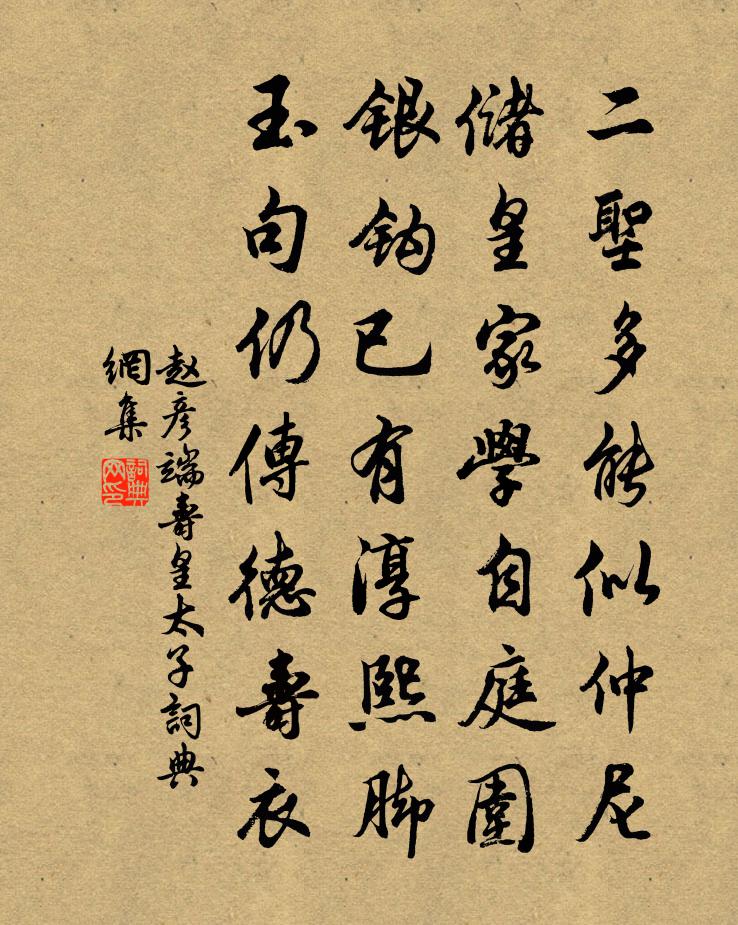 二聖多能似仲尼
儲皇家學自庭圍
銀鈎已有淳熙脚
玉句仍傳德壽衣
赵彥端壽皇太子詞典
網集
詞典
网印